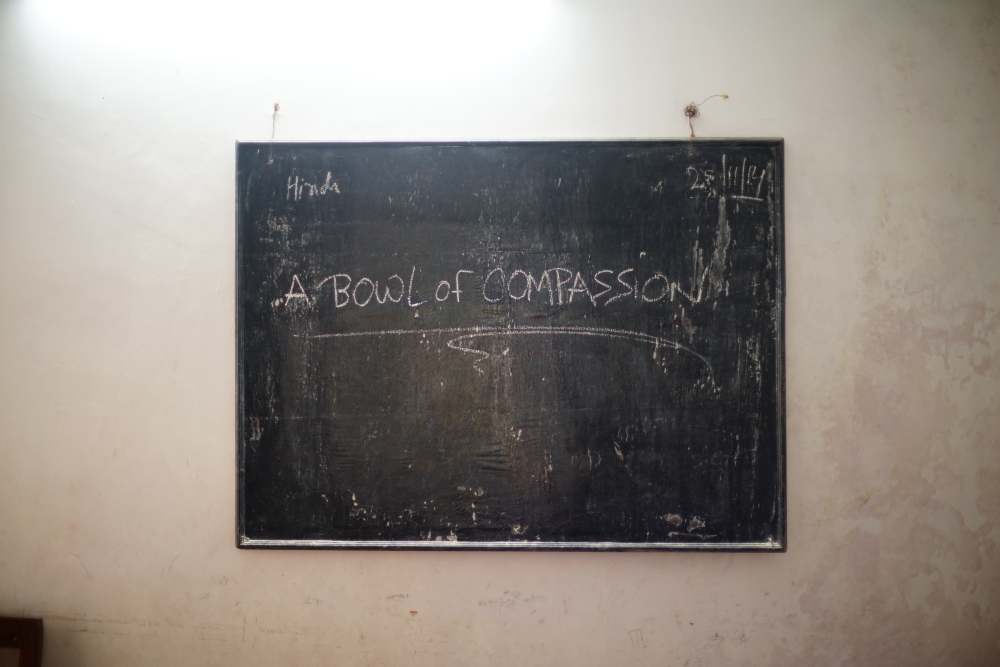 Hindi 28/11/14
A BOWL of COMPASSION